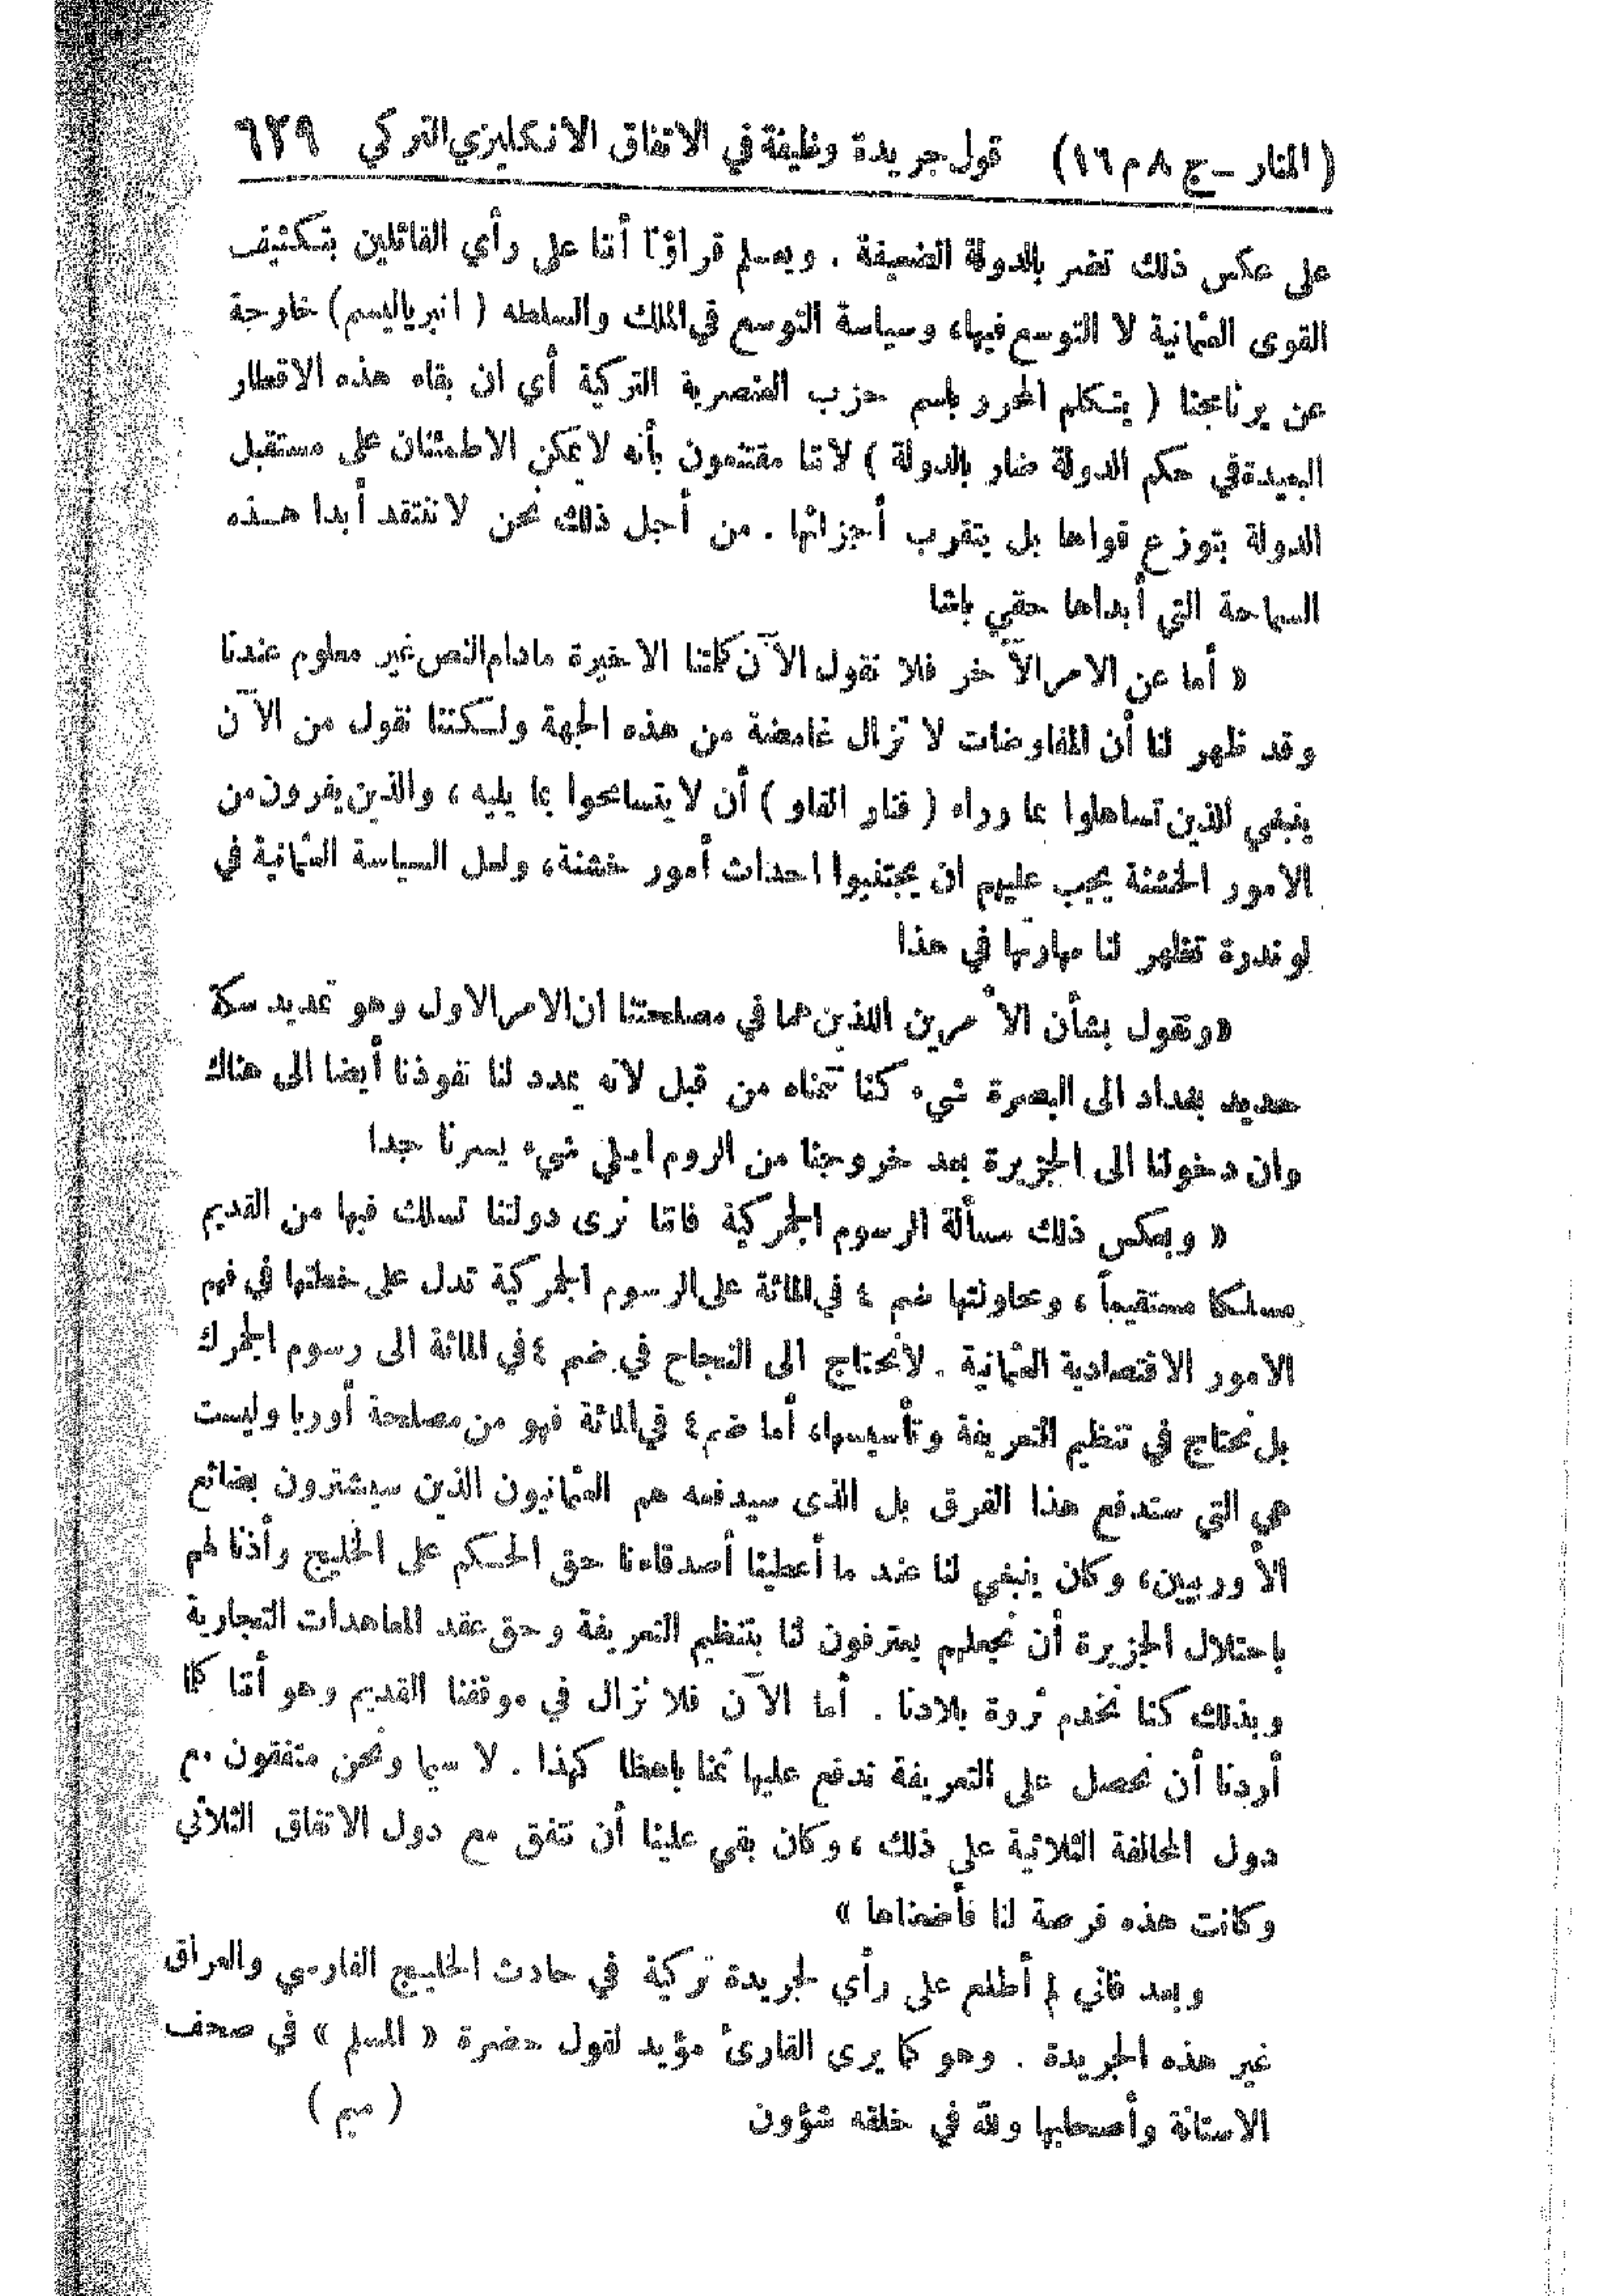 (المنار – ج ٨ م ١٦) قول جريدة وظيفة في الاتفاق الانكليزي التركي ٦٢٩
على عكس ذلك تضر بالدولة الضعيفة . ويعلم قراؤنا أننا على رأي القائلين بتكثيف
القوى العثمانية لا التوسع فيها، وسياسة التوسع في الملك والسلطه ( انبرياليسم ) خارجة
عن برنامجنا ( يتكلم المحرر باسم حزب العنصرية التركية أي ان بقاء هذه الاقطار
البعيدة في حكم الدولة ضار بالدولة ) لاننا مقتنعون بأنه لا يمكن الاطمئنان على مستقبل
الدولة بتوزع قواها بل بتقرب أجزائها . من أجل ذلك نحن لا ننتقد أبدا هذه
السماحة التي أبداها حقي باشا
« أما عن الامر الآخر فلا نقول الآن كلمتنا الاخيرة مادام النص غير معلوم عندنا
وقد ظهر لنا أن المفاوضات لا تزال غامضة من هذه الجهة ولكننا نقول من الآن
ينبغي للذين تساهلوا بما وراء ( فنار الفاو ) أن لا يتسامحوا بما يليه ، والذين يفرون من
الامور الخشنة يجب عليهم ان يجتنبوا احداث أمور خشنة، ولعل السياسة العثمانية في
لوندرة تظهر لنا مهارتها في هذا
«ونقول بشأن الأمرين اللذين هما في مصلحتنا ان الامر الاول وهو تمديد سكة
حديد بغداد الى البصرة شيء كنا نتمناه من قبل لانه يمدد لنا نفوذنا أيضا الى هناك
وان دخولنا الى الجزيرة بعد خروجنا من الروم ايلي شيء يسرنا جدا
« وبعكس ذلك مسألة الرسوم الجمركية فاننا نرى دولتنا تسلك فيها من القديم
مسلكا مستقيماً ، ومحاولتها ضم ٤ في المائة على الرسوم الجمركية تدل على خطتها في فهم
الامور الاقتصادية العثمانية . لا نحتاج الى النجاح في ضم ٤ في المائة الى رسوم الجمرك
بل نحتاج في تنظيم التعريفة وتأسيسها، أما ضم ٤ في المائة فهو من مصلحة أوربا وليست
هي التي ستدفع هذا الفرق بل الذى سيدفعه هم العثمانيون الذين سيشترون بضائع
الأوربيين، وكان ينبغي لنا عند ما أعطينا أصدقاءنا حق الحكم على الخليج وأذنا لهم
باحتلال الجزيرة أن نجعلهم يعترفون لنا بتنظيم التعريفة وحق عقد المعاهدات التجارية
وبذلك كنا نخدم ثروة بلادنا . أما الآن فلا نزال في موقفنا القديم وهو أننا كلما
أردنا أن نحصل على التعريفة ندفع عليها ثمنا باهظا كهذا . لا سيما ونحن متفقون مع
دول المحالفة الثلاثية على ذلك ، وكان بقي علينا أن نتفق مع دول الاتفاق الثلاثي
وكانت هذه فرصة لنا فأضعناها »
وبعد فاني لم أطلع على رأي لجريدة تركية في حادث الخليج الفارسي والعراق
غير هذه الجريدة . وهو كما يرى القارئ مؤيد لقول حضرة « المسلم » في صحف
الاستانة وأصحابها ولله في خلقه شؤون ( ميم )